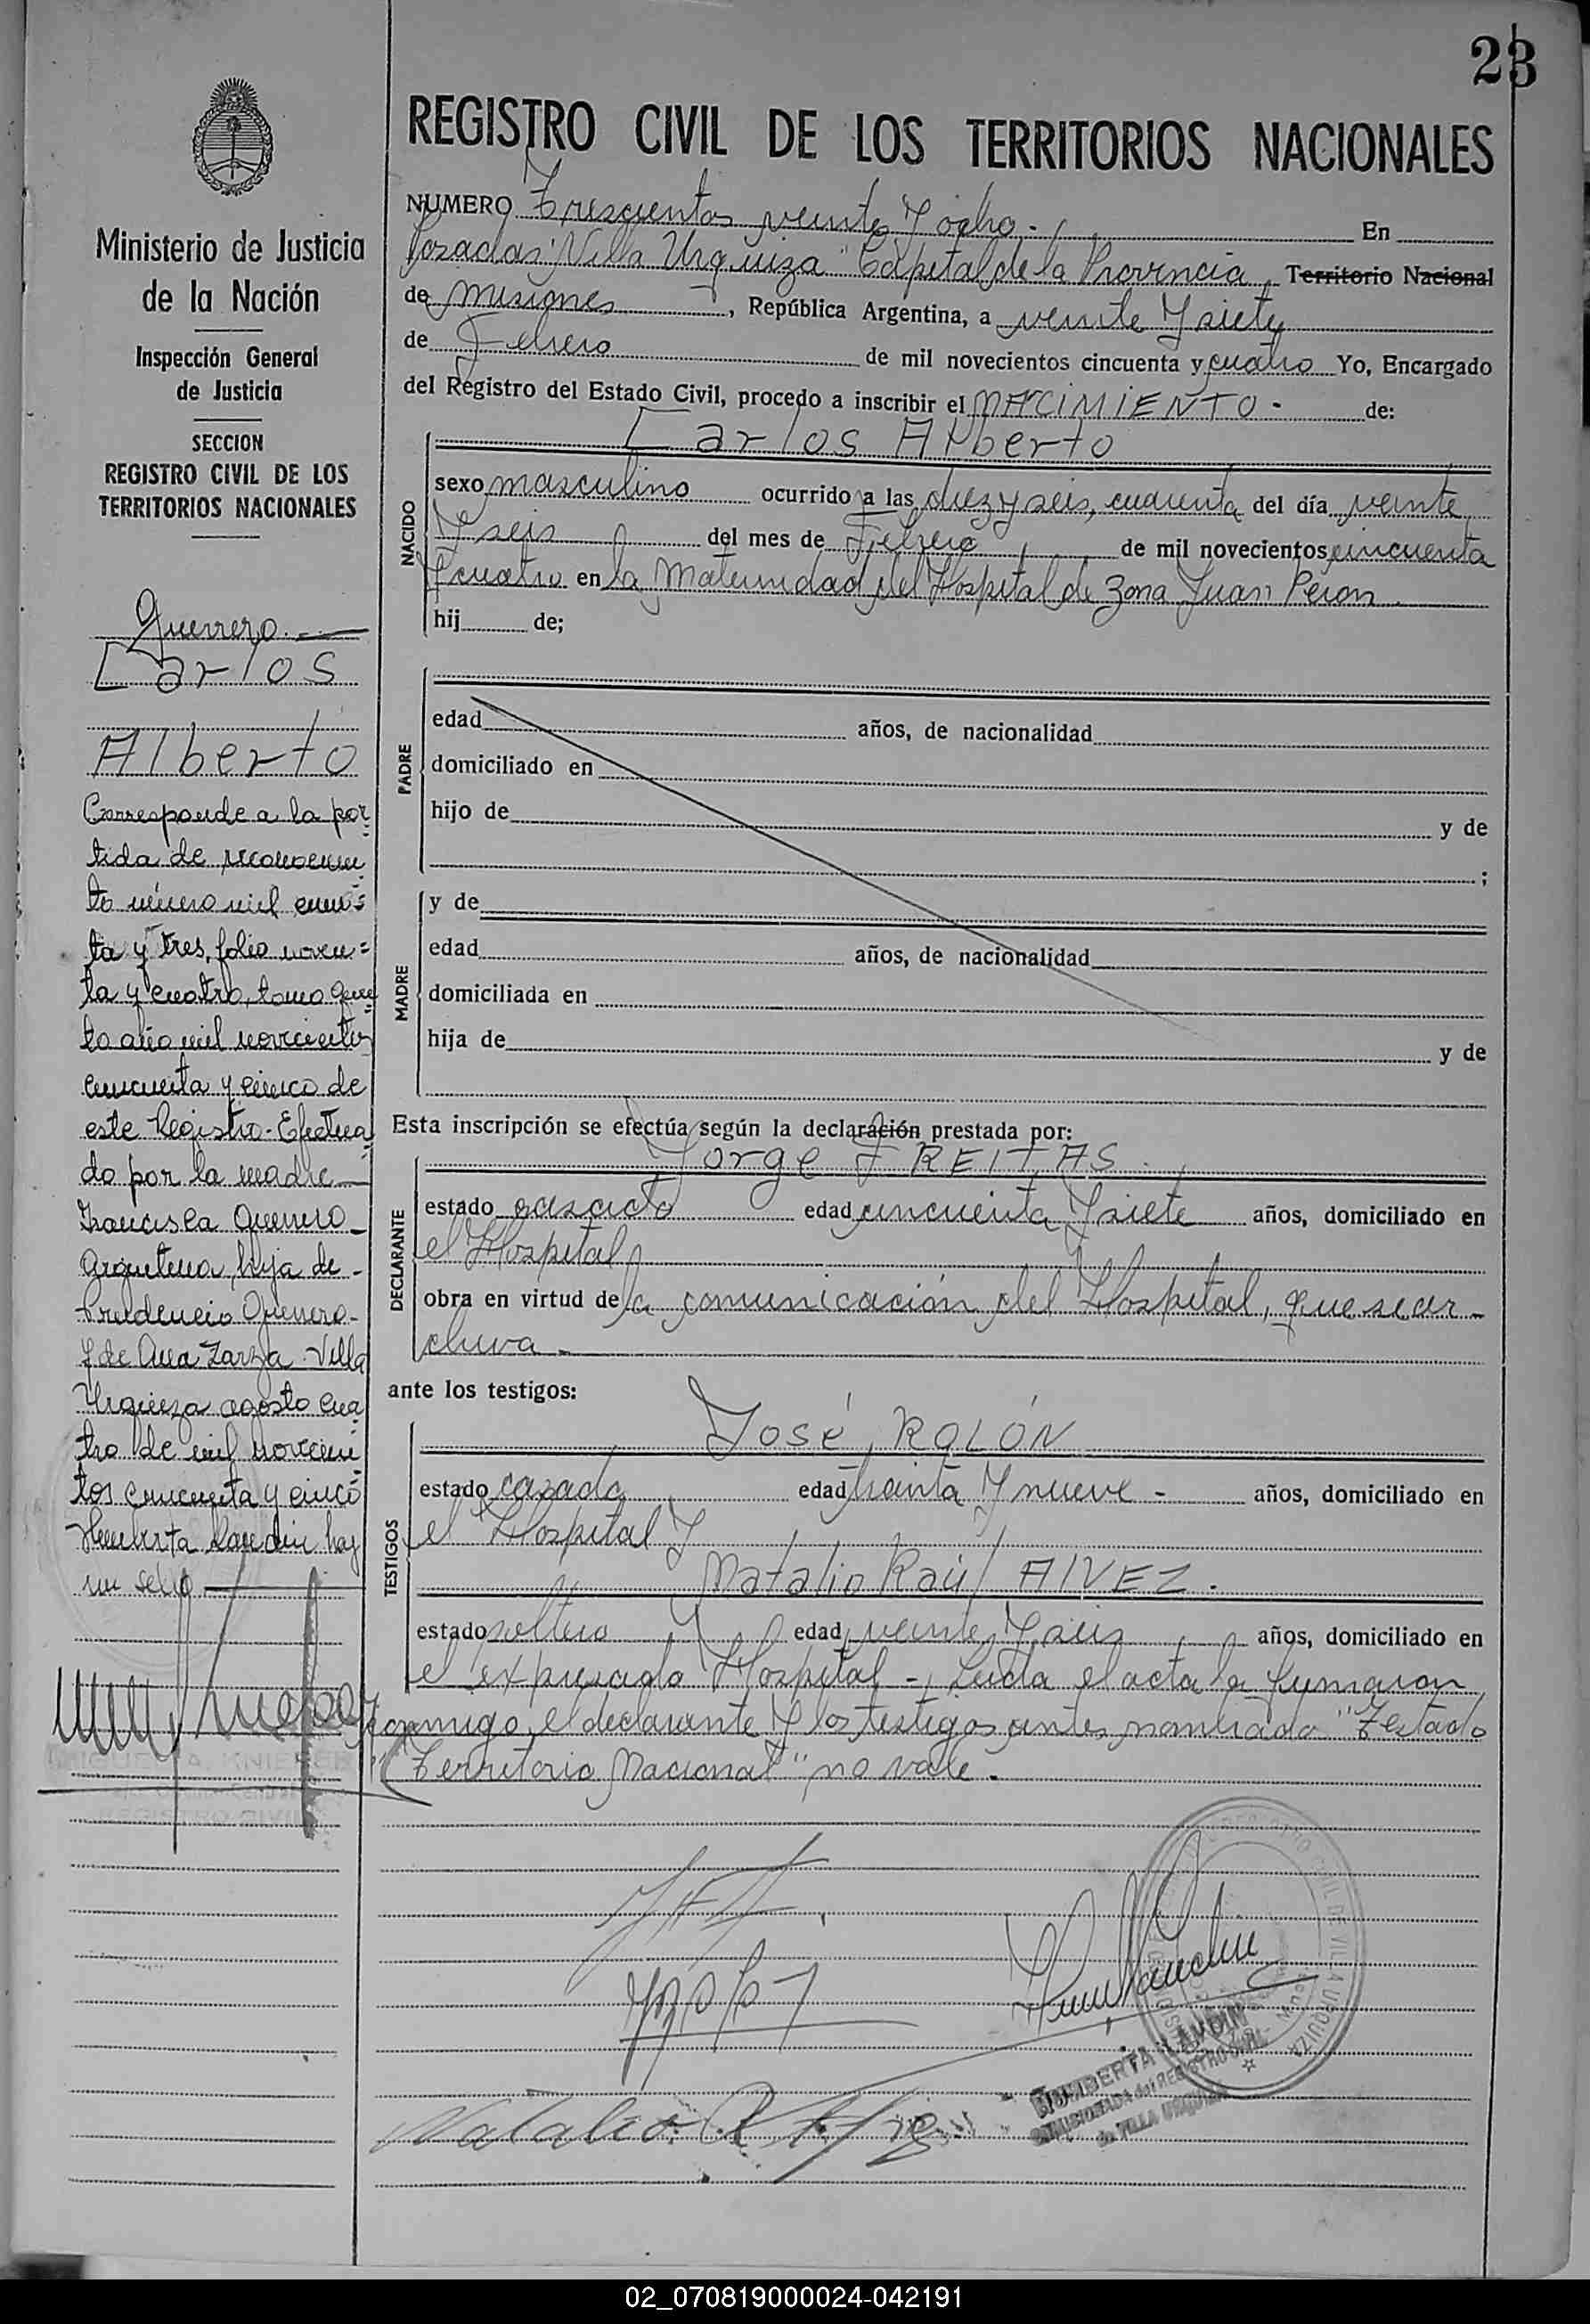 23
REGISTRO CIVIL DE LOS TERRITORIOS NACIONALES
Ministerio de Justicia
de la Nación
Inspección General
de Justicia
SECCION
REGISTRO CIVIL DE LOS
TERRITORIOS NACIONALES
Guerrero.
Carlos
Alberto
Corresponde a la par
tida de reconocimien
to número mil cuaren
ta y tres, folio noven=
ta y cuatro, tomo
to año mil novecientos
cincuenta y cinco de
este Registro - Efectua
do por la madre
Francisca Guerrero
argentina, hija de
Prudencio Guerrero
y de Ana Zarza. Villa
Urquiza agosto cua
tro de mil novecien
tos cincuenta y cinco
Humberta Landin hay
un sello
NUMERO Trescientos veinte y ocho.- En
Posadas "Villa Urquiza" Capital de la Provincia, Territorio Nacional
de Misiones, República Argentina, a veinte y siete
de Febrero de mil novecientos cincuenta y cuatro Yo, Encargado
del Registro del Estado Civil, procedo a inscribir el NACIMIENTO - de:
NACIDO
Carlos Alberto
sexo masculino ocurrido a las diez y seis, cuarenta del día veinte
y seis del mes de Febrero de mil novecientos cincuenta
y cuatro en la Maternidad del Hospital de Zona Juan Peron
hij de;
PADRE
edad años, de nacionalidad
domiciliado en
hijo de y de
;
MADRE
y de
edad años, de nacionalidad
domiciliada en
hija de y de
Esta inscripción se efectúa según la declaración prestada por:
DECLARANTE
Jorge FREITAS.
estado casado edad cincuenta y siete años, domiciliado en
el Hospital
obra en virtud de la comunicación del Hospital, que se ar-
chiva -
ante los testigos:
TESTIGOS
José ROLÓN
estado casado edad treinta y nueve - años, domiciliado en
el Hospital y
Natalio Raúl ALVEZ.
estado soltero edad veinte y seis años, domiciliado en
el expresado Hospital -, Leida el acta la firmaron
conmigo, el declarante y los testigos antes nombrado "Testado
"Territorio Nacional" no vale.
Natalio R
HUMBERTA LANDIN
del REGISTRO CIVIL
de VILLA URQUIZA
02_070819000024-042191